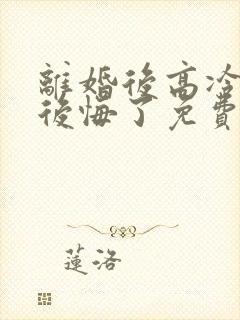 離婚後高冷
後悔了免費
蓮洛